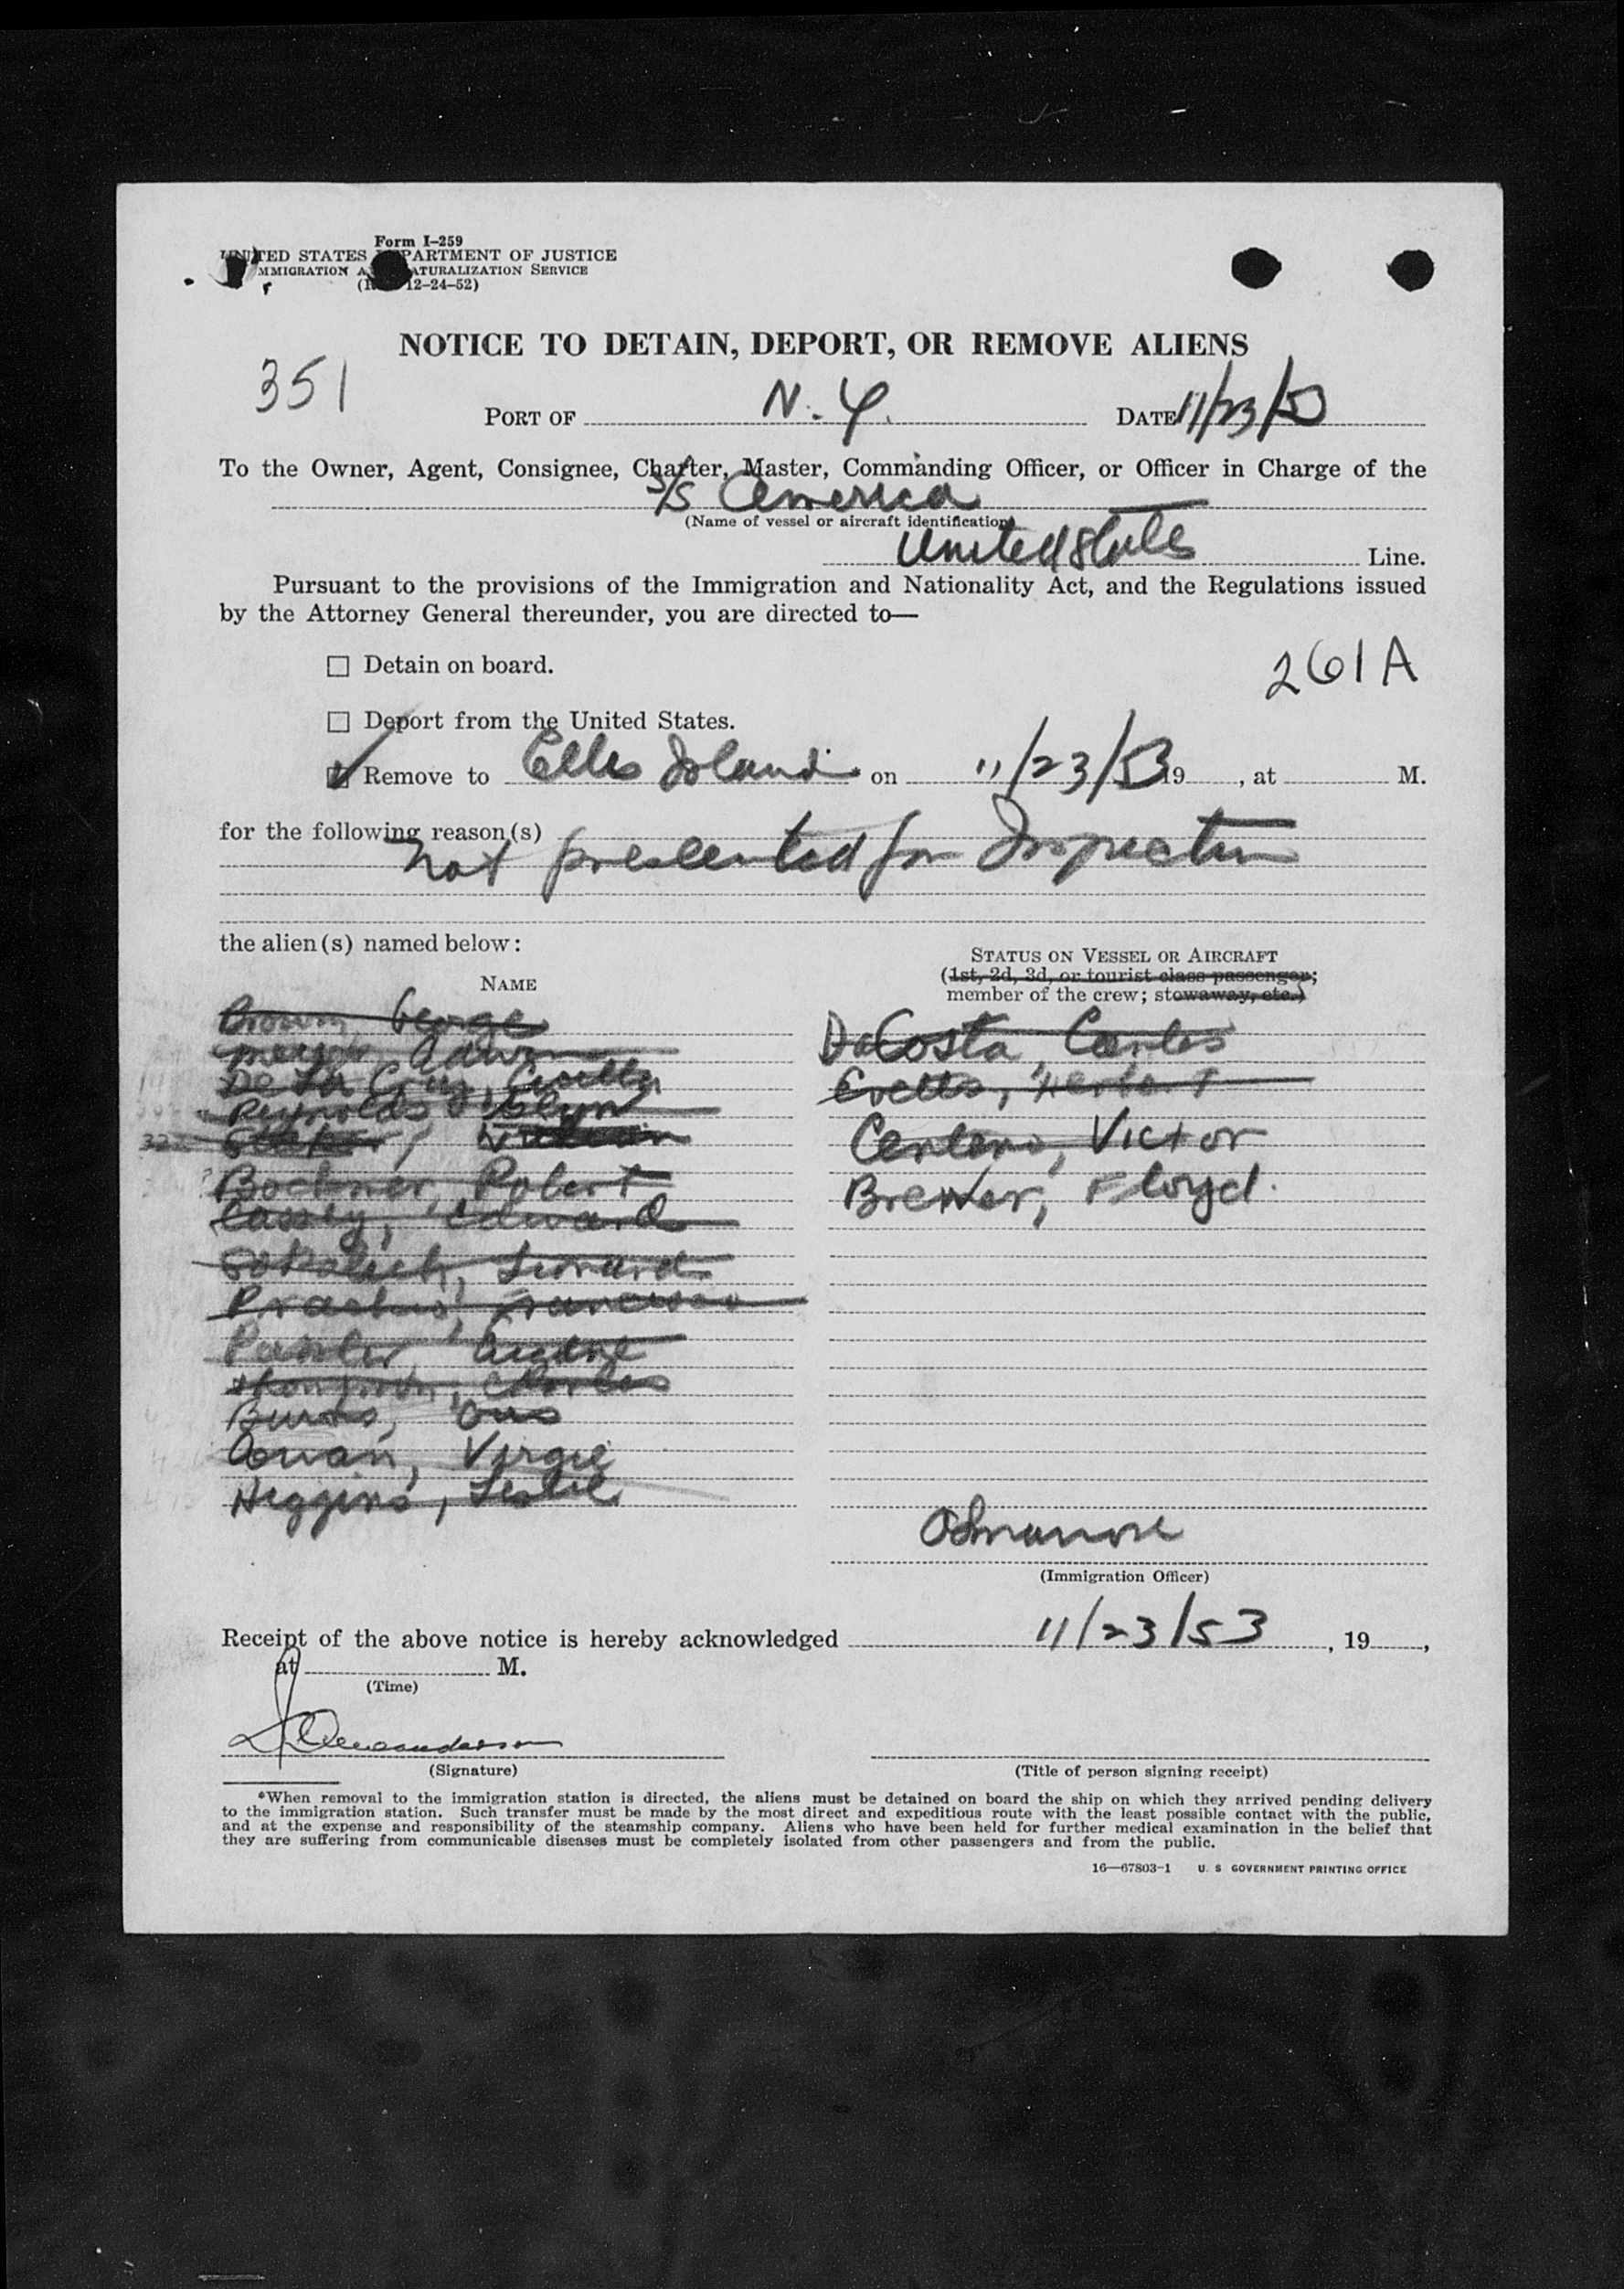 Form I-259
UNITED STATES DEPARTMENT OF JUSTICE
IMMIGRATION AND NATURALIZATION SERVICE
12-24-52)
NOTICE TO DETAIN, DEPORT, OR REMOVE ALIENS
351
PORT OF N.Y. DATE 11/23/53
To the Owner, Agent, Consignee, Charter, Master, Commanding Officer, or Officer in Charge of the
S/S America
(Name of vessel or aircraft identification)
United States Line.
Pursuant to the provisions of the Immigration and Nationality Act, and the Regulations issued
by the Attorney General thereunder, you are directed to—
☐ Detain on board.
261A
☐ Deport from the United States.
Remove to Ellis Island* on 11/23/53 19 , at M.
for the following reason(s)
not presented for Inspection
the alien(s) named below:
STATUS ON VESSEL OR AIRCRAFT
(1st, 2d, 3d, or tourist class passenger;
NAME
member of the crew; stowaway, etc.)
Brown, George
DaCosta, Carlos
Edwin
De La Cruz,
Herbert
Reynolds,
Centeno, Victor
Bochner, Robert
Brewer, Floyd.
Cassey, Edward
Leonard
Francisco
Eugene
Charles
Burns,
Virgil
Higgins, Leslie
(Immigration Officer)
Receipt of the above notice is hereby acknowledged 11/23/53 , 19 ,
at M.
(Time)
(Signature)
(Title of person signing receipt)
*When removal to the immigration station is directed, the aliens must be detained on board the ship on which they arrived pending delivery
to the immigration station. Such transfer must be made by the most direct and expeditious route with the least possible contact with the public,
and at the expense and responsibility of the steamship company. Aliens who have been held for further medical examination in the belief that
they are suffering from communicable diseases must be completely isolated from other passengers and from the public.
16—67803-1 U. S GOVERNMENT PRINTING OFFICE